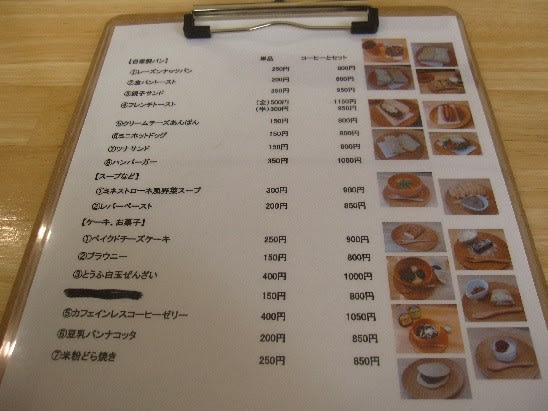 【自家製パン】 単品 コーヒーとセット
①レーズンナッツパン 250円 800円
②食パントースト 200円
③親子サンド 350円 950円
④フレンチトースト (全)500円 1150円
(半)300円 950円
⑤クリームチーズあんぱん 150円 800円
⑥ミニホットドッグ 150円 800円
⑦ツナサンド 150円 800円
⑧ハンバーガー 350円 1000円
【スープなど】
①ミネストローネ風野菜スープ 300円 900円
②レバーペースト 200円 850円
【ケーキ、お菓子】
①ベイクドチーズケーキ 250円 900円
②ブラウニー 150円 800円
③とうふ白玉ぜんざい 400円 1000円
150円 800円
⑤カフェインレスコーヒーゼリー 400円 1050円
⑥豆乳パンナコッタ 200円 850円
⑦米粉どら焼き 250円 850円